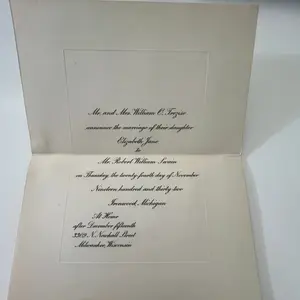 Mr. and Mrs. William O. Trezise
announce the marriage of their daughter
Elizabeth Jane
to
Mr. Robert William Swain
on Thursday, the twenty fourth day of November
Nineteen hundred and thirty two
Ironwood, Michigan
At Home
after December fifteenth
3309 N. Newhall Street
Milwaukee, Wisconsin